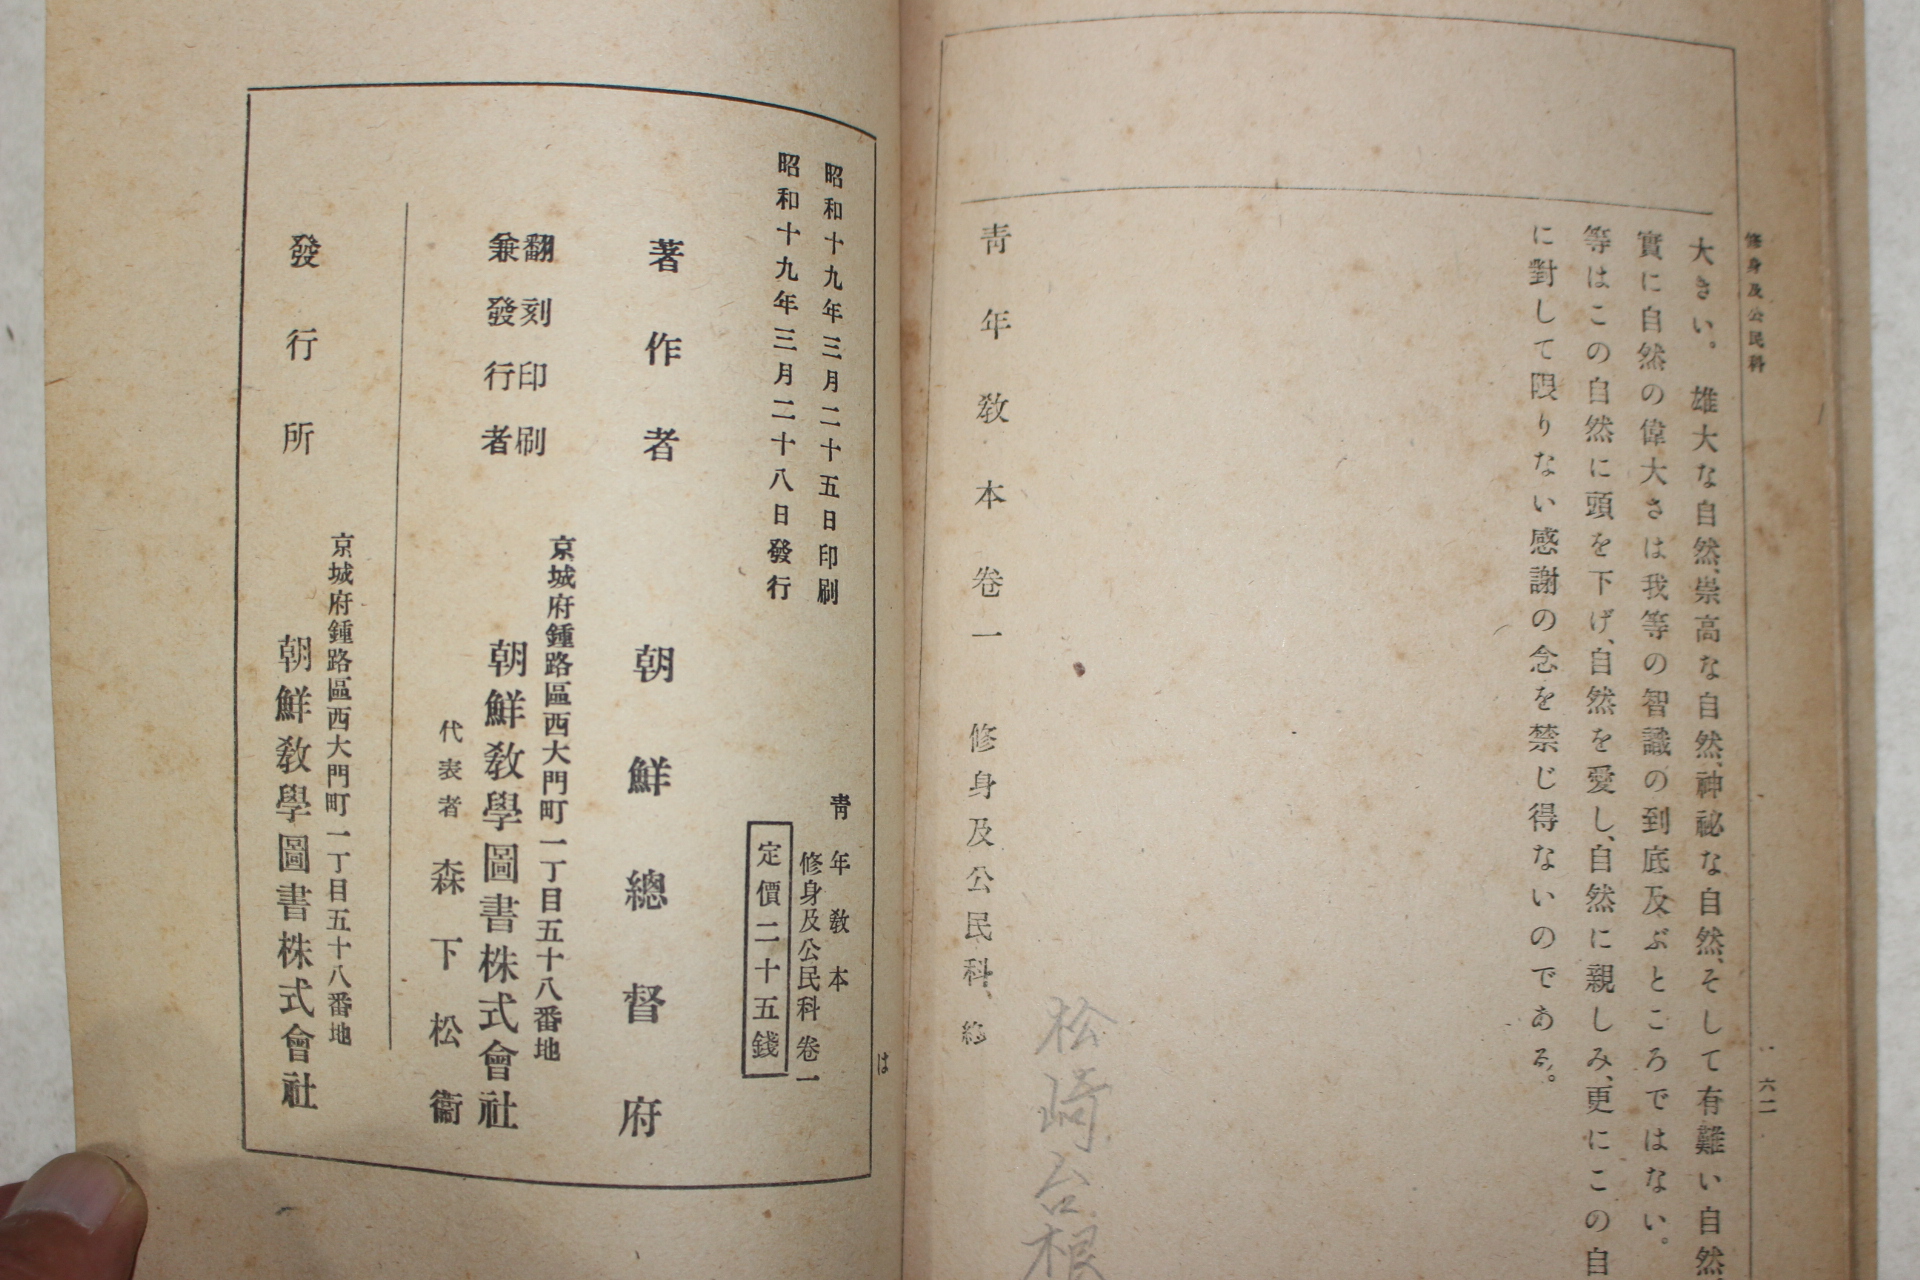 修身及公民科
六二
大きい。雄大な自然、崇高な自然、神祕な自然、そして有難い自然
實に自然の偉大さは我等の智識の到底及ぶところではない。
等はこの自然に頭を下げ、自然を愛し、自然に親しみ、更にこの自
に對して限りない感謝の念を禁じ得ないのである。
松崎台根
靑年敎本卷一 修身及公民科、終
は
昭和十九年三月二十五日印刷
昭和十九年三月二十八日發行
靑年敎本
修身及公民科卷一
定價二十五錢
著作者 朝鮮總督府
翻刻印刷
兼發行者
京城府鍾路區西大門町一丁目五十八番地
朝鮮敎學圖書株式會社
代表者 森下松衞
發行所
京城府鍾路區西大門町一丁目五十八番地
朝鮮敎學圖書株式會社